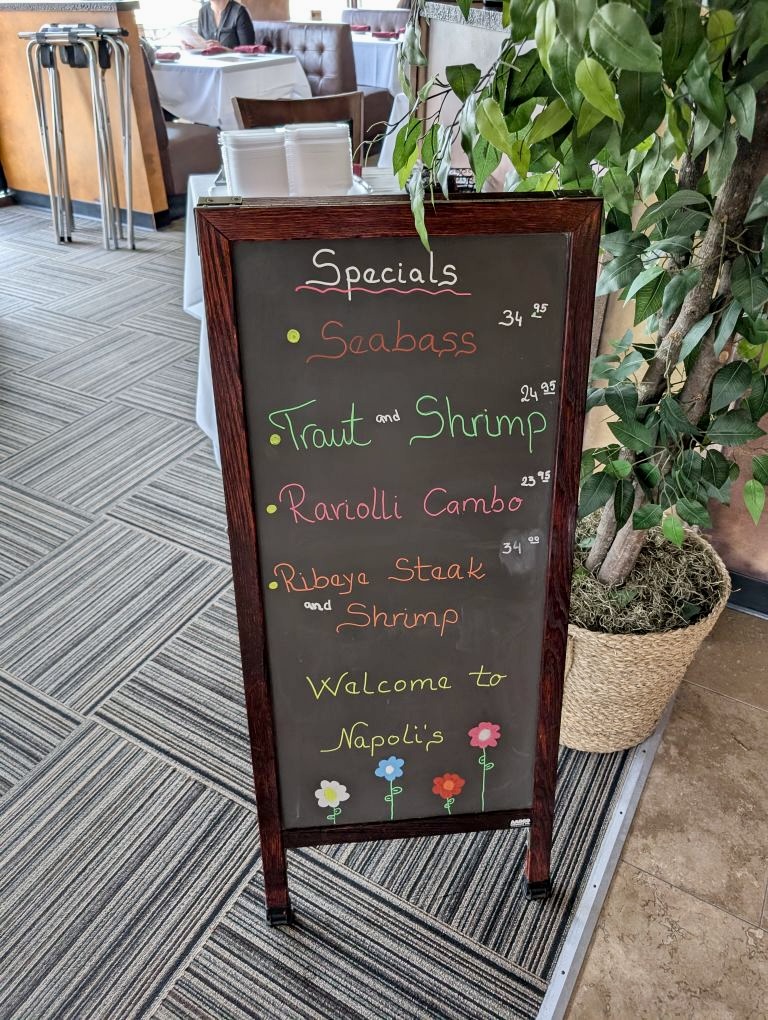 Specials
Seabass 34 95
Traut and Shrimp 24 95
Raviolli Cambo 23 95
Ribeye Steak 34 00
and Shrimp
Welcome to
Napoli's